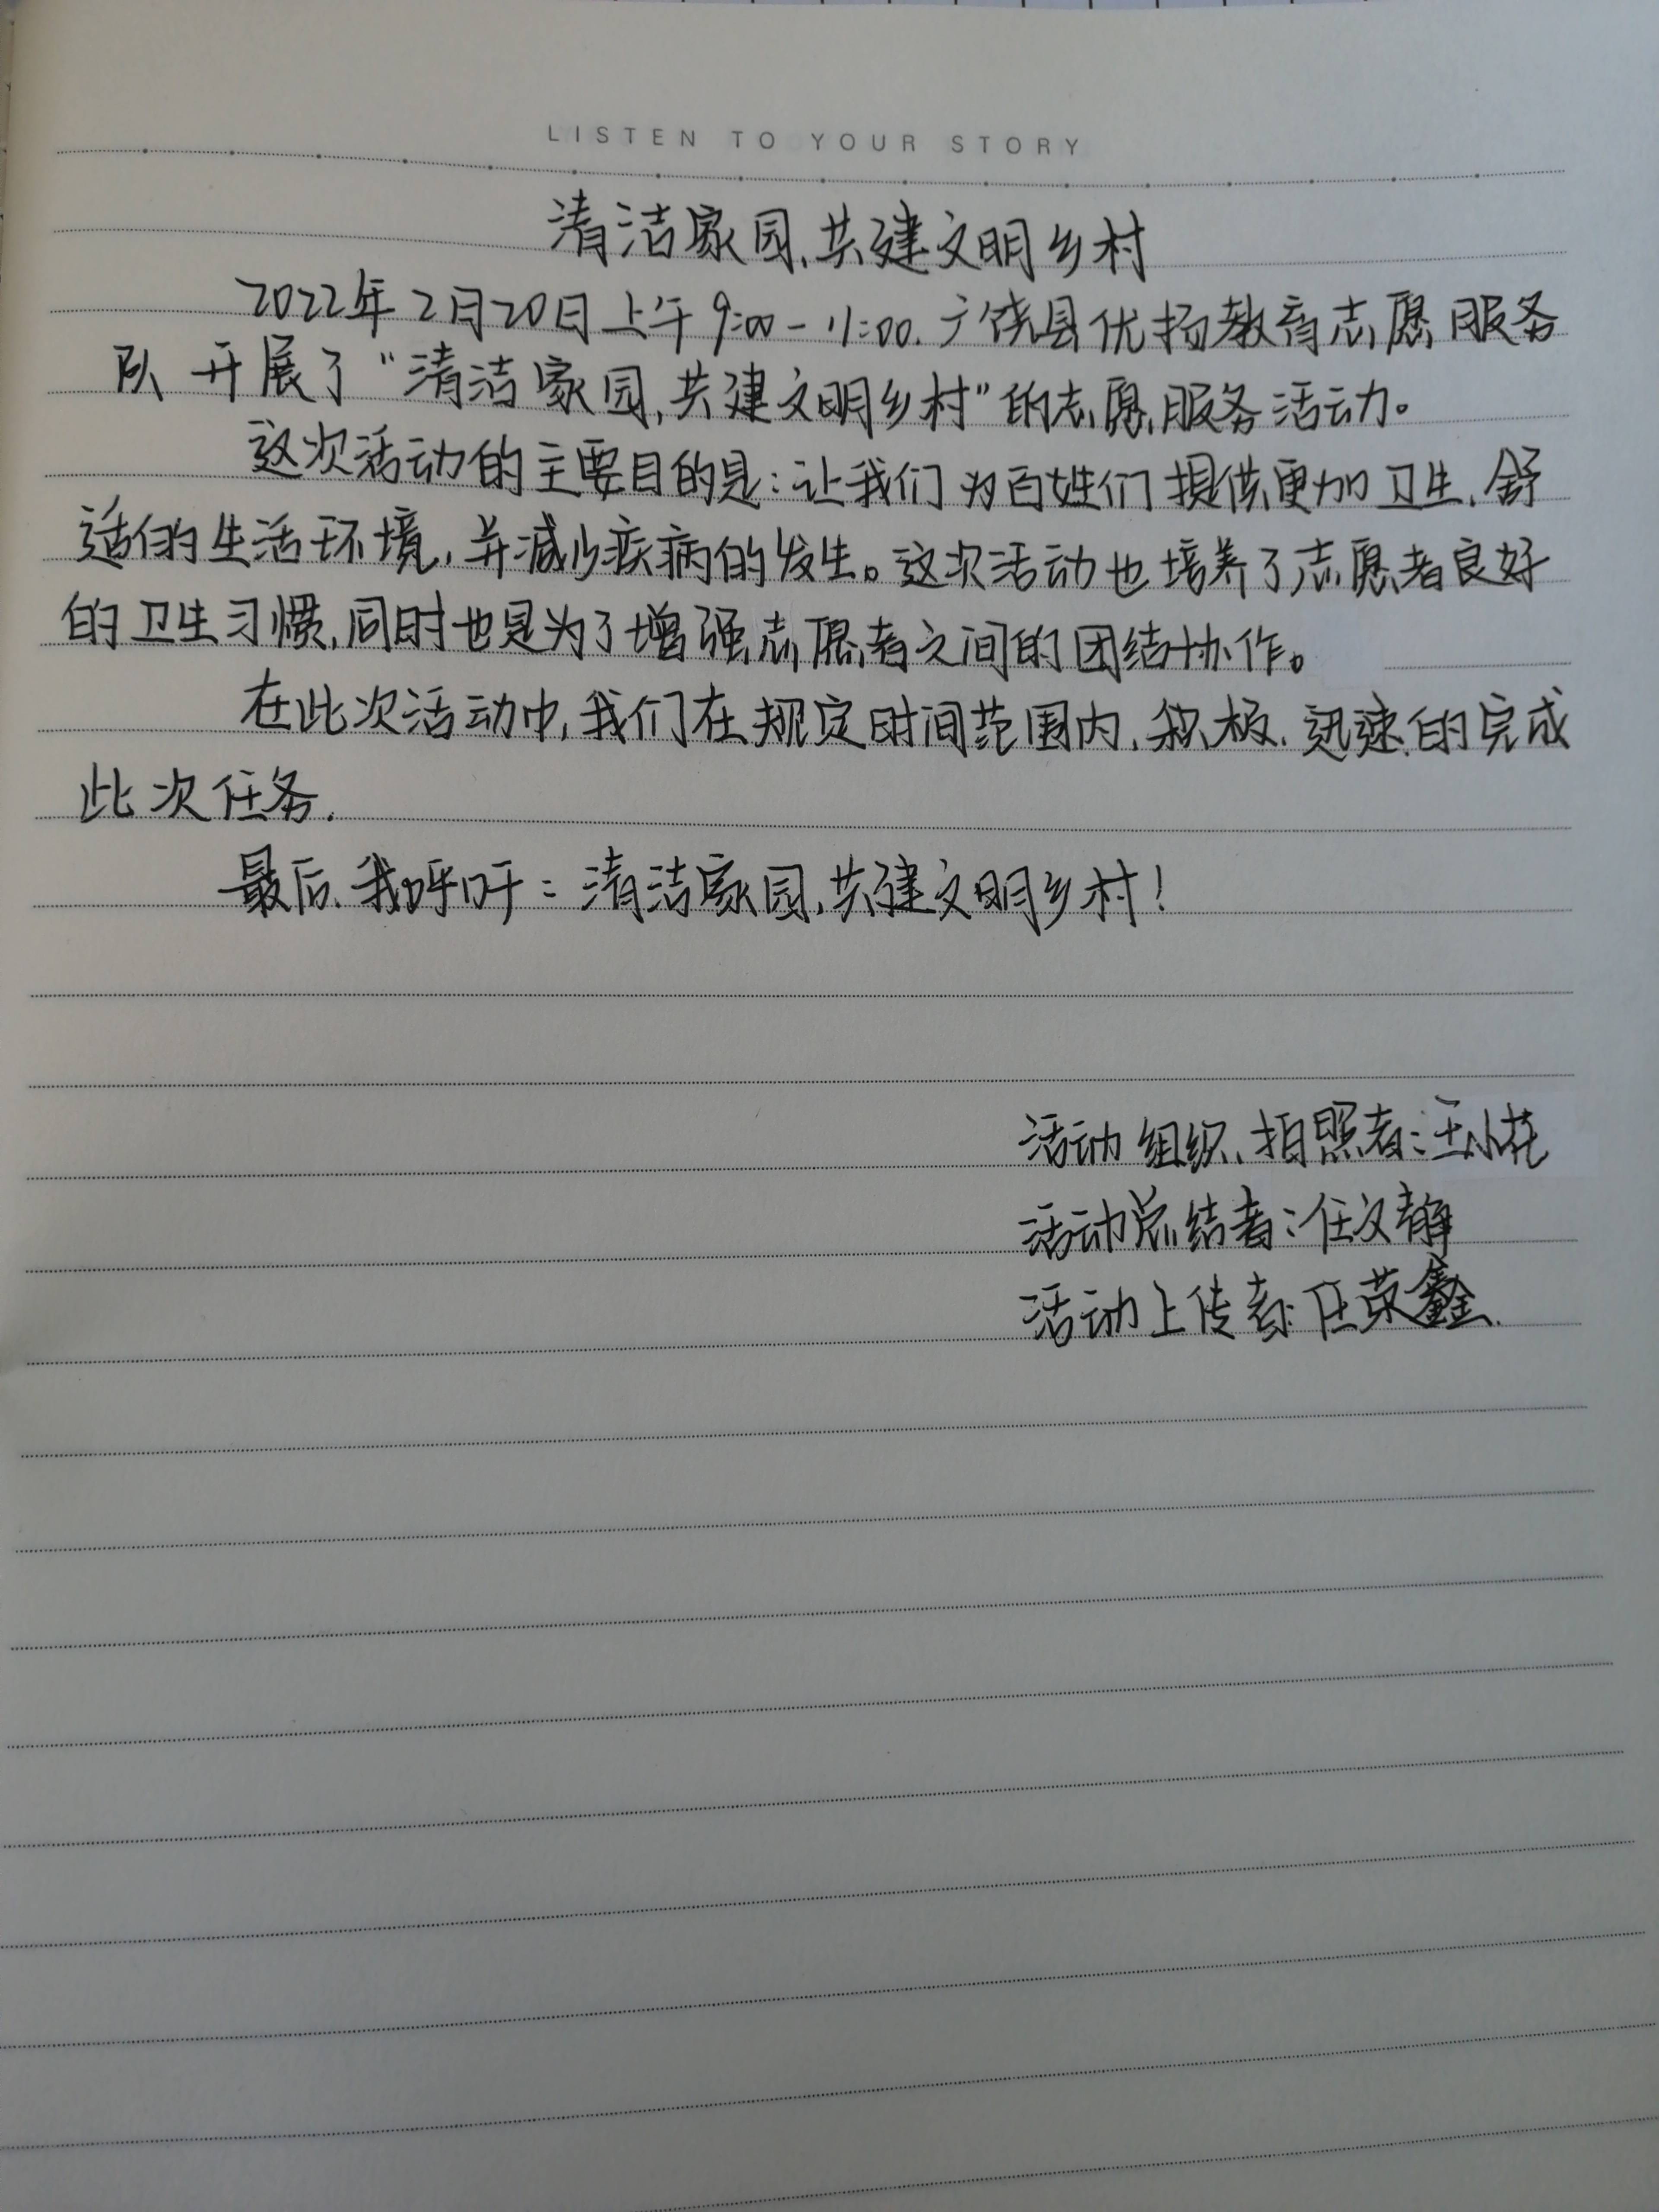 LISTEN TO YOUR STORY
清洁家园,共建文明乡村
2022年2月20日上午9:00-11:00.广饶县优扬教育志愿服务
队开展了“清洁家园,共建文明乡村”的志愿服务活动。
这次活动的主要目的是:让我们为百姓们提供更加卫生、舒
适的生活环境,并减少疾病的发生。这次活动也培养了志愿者良好
的卫生习惯,同时也是为了增强志愿者之间的团结协作。
在此次活动中,我们在规定时间范围内,积极、迅速的完成
此次任务.
最后、我呼吁:清洁家园,共建文明乡村!
活动组织、拍照者:王小花
活动总结者:任文静
活动上传者:任荣鑫